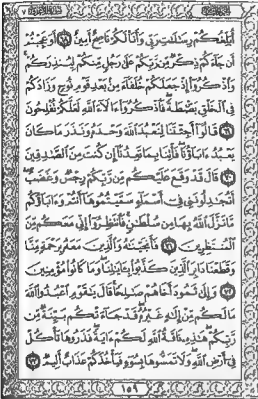 أُبَلِّغُكُمْ رِسَٰلَٰتِ رَبِّي وَأَنَا۠ لَكُمْ نَاصِحٌ أَمِينٌ ٦٨ أَوَعَجِبْتُمْ
أَن جَآءَكُمْ ذِكْرٌ مِّن رَّبِّكُمْ عَلَىٰ رَجُلٍ مِّنكُمْ لِيُنذِرَكُمْ ۚ
وَٱذْكُرُوٓا۟ إِذْ جَعَلَكُمْ خُلَفَآءَ مِنۢ بَعْدِ قَوْمِ نُوحٍ وَزَادَكُمْ
فِي ٱلْخَلْقِ بَصْۜطَةً ۖ فَٱذْكُرُوٓا۟ ءَالَآءَ ٱللَّهِ لَعَلَّكُمْ تُفْلِحُونَ
٦٩ قَالُوٓا۟ أَجِئْتَنَا لِنَعْبُدَ ٱللَّهَ وَحْدَهُۥ وَنَذَرَ مَا كَانَ
يَعْبُدُ ءَابَآؤُنَا ۖ فَأْتِنَا بِمَا تَعِدُنَآ إِن كُنتَ مِنَ ٱلصَّٰدِقِينَ
٧٠ قَالَ قَدْ وَقَعَ عَلَيْكُم مِّن رَّبِّكُمْ رِجْسٌ وَغَضَبٌ ۖ
أَتُجَٰدِلُونَنِي فِيٓ أَسْمَآءٍ سَمَّيْتُمُوهَآ أَنتُمْ وَءَابَآؤُكُم
مَّا نَزَّلَ ٱللَّهُ بِهَا مِن سُلْطَٰنٍ ۚ فَٱنتَظِرُوٓا۟ إِنِّي مَعَكُم مِّنَ
ٱلْمُنتَظِرِينَ ٧١ فَأَنجَيْنَٰهُ وَٱلَّذِينَ مَعَهُۥ بِرَحْمَةٍ مِّنَّا
وَقَطَعْنَا دَابِرَ ٱلَّذِينَ كَذَّبُوا۟ بِـَٔايَٰتِنَا ۖ وَمَا كَانُوا۟ مُؤْمِنِينَ
٧٢ وَإِلَىٰ ثَمُودَ أَخَاهُمْ صَٰلِحًا ۗ قَالَ يَٰقَوْمِ ٱعْبُدُوا۟ ٱللَّهَ
مَا لَكُم مِّنْ إِلَٰهٍ غَيْرُهُۥ ۖ قَدْ جَآءَتْكُم بَيِّنَةٌ مِّن
رَّبِّكُمْ ۖ هَٰذِهِۦ نَاقَةُ ٱللَّهِ لَكُمْ ءَايَةً ۖ فَذَرُوهَا تَأْكُلْ
فِيٓ أَرْضِ ٱللَّهِ ۖ وَلَا تَمَسُّوهَا بِسُوٓءٍ فَيَأْخُذَكُمْ عَذَابٌ أَلِيمٌ ٧٣
١٥٩